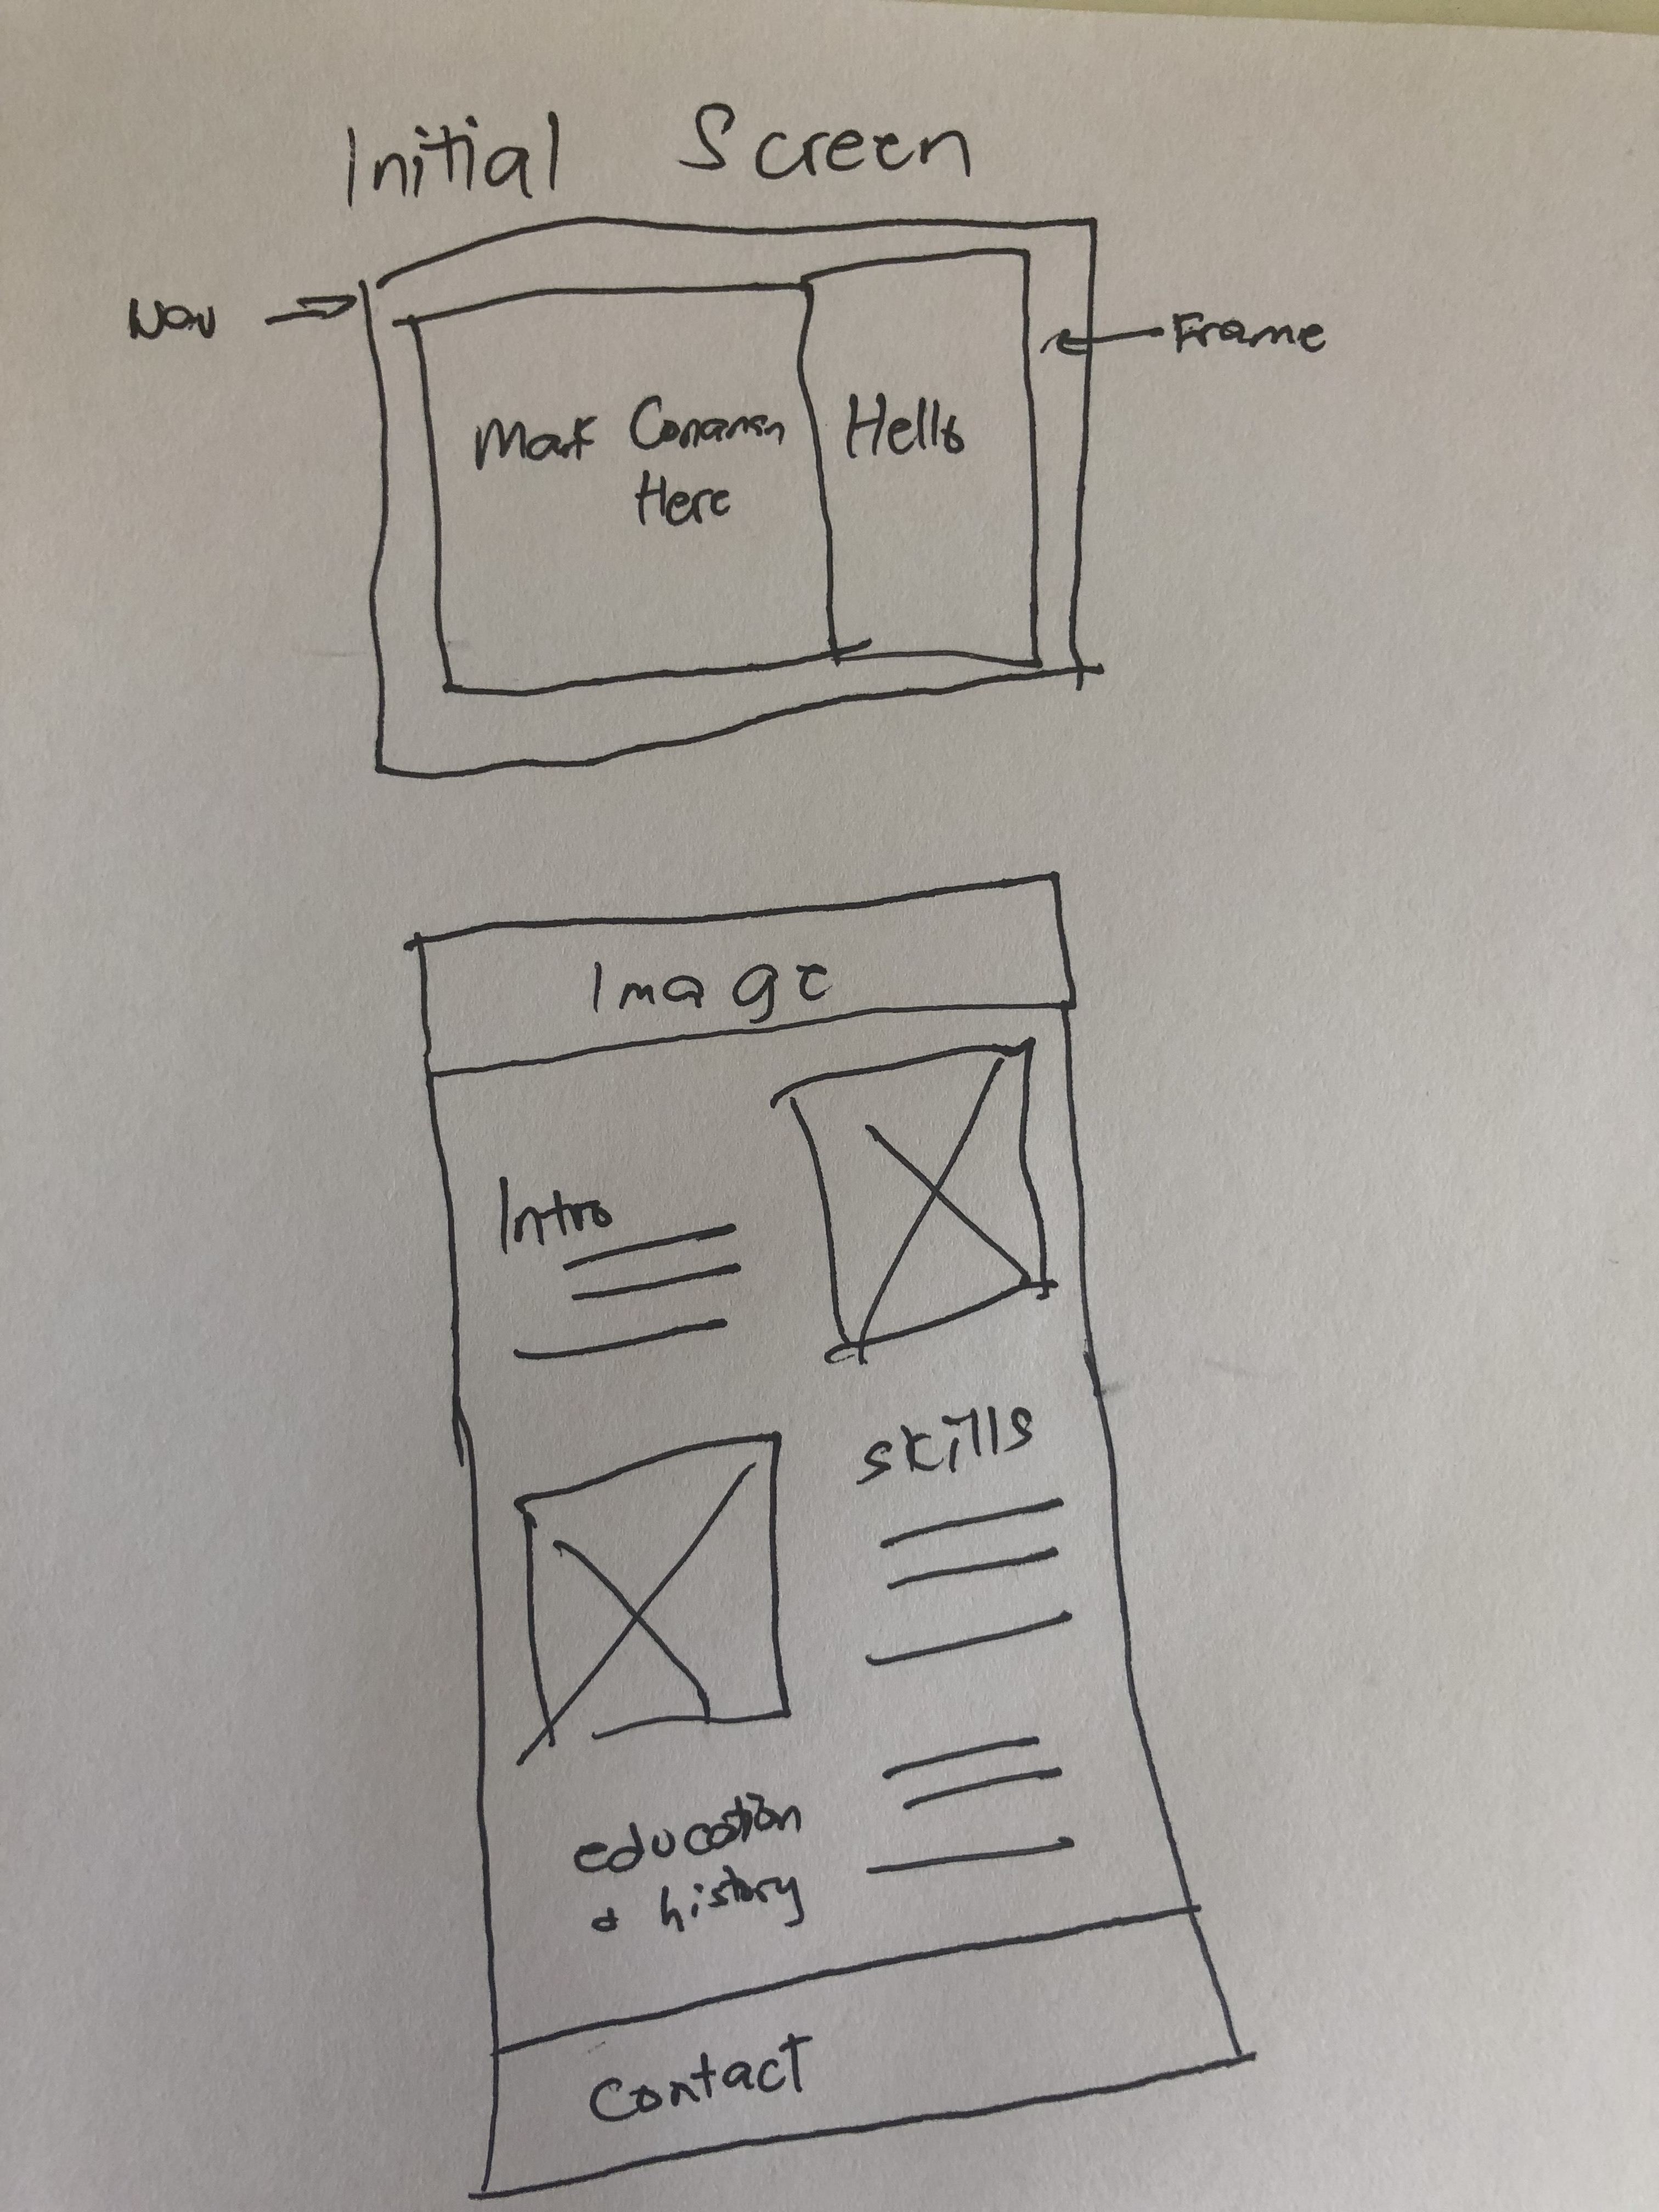 Initial Screen
Nav
Frame
Mark
Hello
Here
Image
Intro
skills
education
& history
Contact